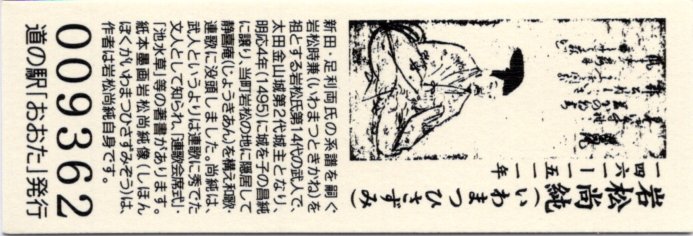 岩松尚純
(いわまつひさずみ)
一四六一ー一五一一年
新田・足利両氏の系譜を嗣ぐ
岩松時兼(いわまつときかね)を
祖とする岩松氏第14代の武人で、
太田金山城第2代城主となり、
明応4年(1495)に城を子の昌純
に譲り、当町岩松の地に隠居して
静喜庵(じょうきあん)を構え和歌・
連歌に没頭しました。尚純は、
武人というよりは連歌に秀でた
文人として知られ、「連歌会席式」・
「池水草」等の著書があります。
紙本墨画岩松尚純像(しほん
ぼくがいわまつひさずみぞう)は、
作者は岩松尚純自身です。
009362
道の駅「おおた」発行